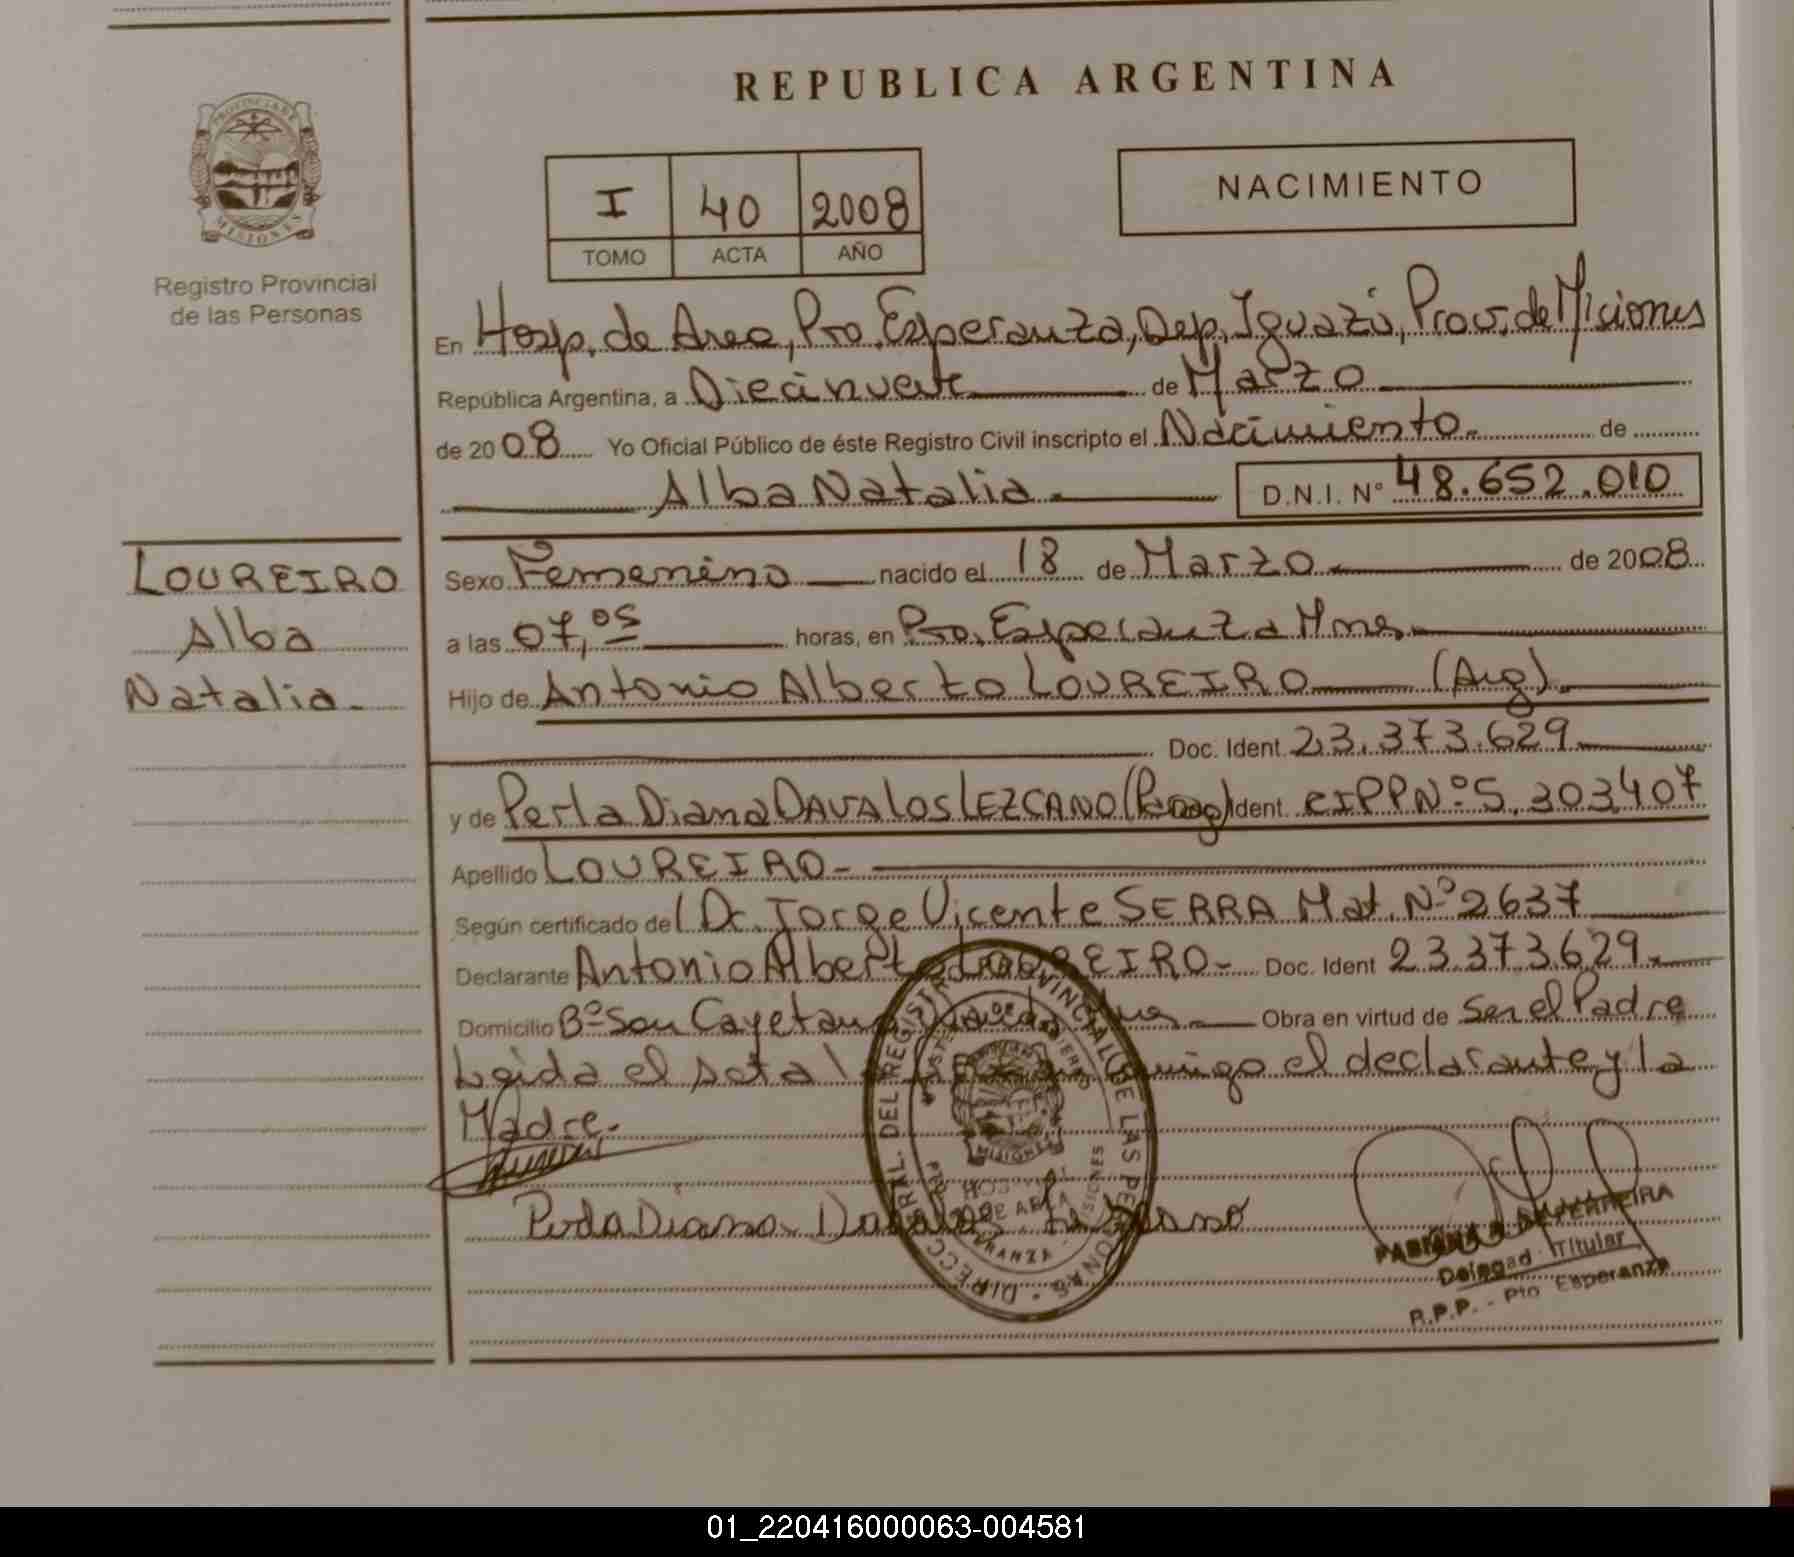 REPUBLICA ARGENTINA
PROVINCIA DE
MISIONES
Registro Provincial
de las Personas
I 40 2008
TOMO ACTA AÑO
NACIMIENTO
En Hosp. de Area, Pto. Esperanza, Dep. Iguazú, Prov. de Miciones
República Argentina, a Diecinueve de Marzo
de 2008 Yo Oficial Público de éste Registro Civil inscripto el Nacimiento. de
Alba Natalia. D.N.I. N° 48.652.010
LOUREIRO
Alba
Natalia.
Sexo Femenino nacido el 18 de Marzo de 2008
a las 07,05 horas, en Pto. Esperanza Mnes.
Hijo de Antonio Alberto LOUREIRO (Arg).
Doc. Ident. 23.373.629
y de Perla Diana DAVALOS LEZCANO (Parag) Ident. CIPPN°5.303407
Apellido LOUREIRO-
Según certificado del Dr. Jorge Vicente SERRA Mat. N°2637
Declarante Antonio Alberto LOUREIRO- Doc. Ident 23.373.629.
Domicilio B° San Cayetano Obra en virtud de Ser el Padre
Leida el acta conmigo el declarante y la
Madre.
Perla Diana Davalos
DIRECC. GRAL. DEL REGISTRO PROVINCIAL DE LAS PERSONAS
MISIONES
HOSPITAL
DE AREA
Delegad Titular
R.P.P. - Pto Esperanza
01_220416000063-004581